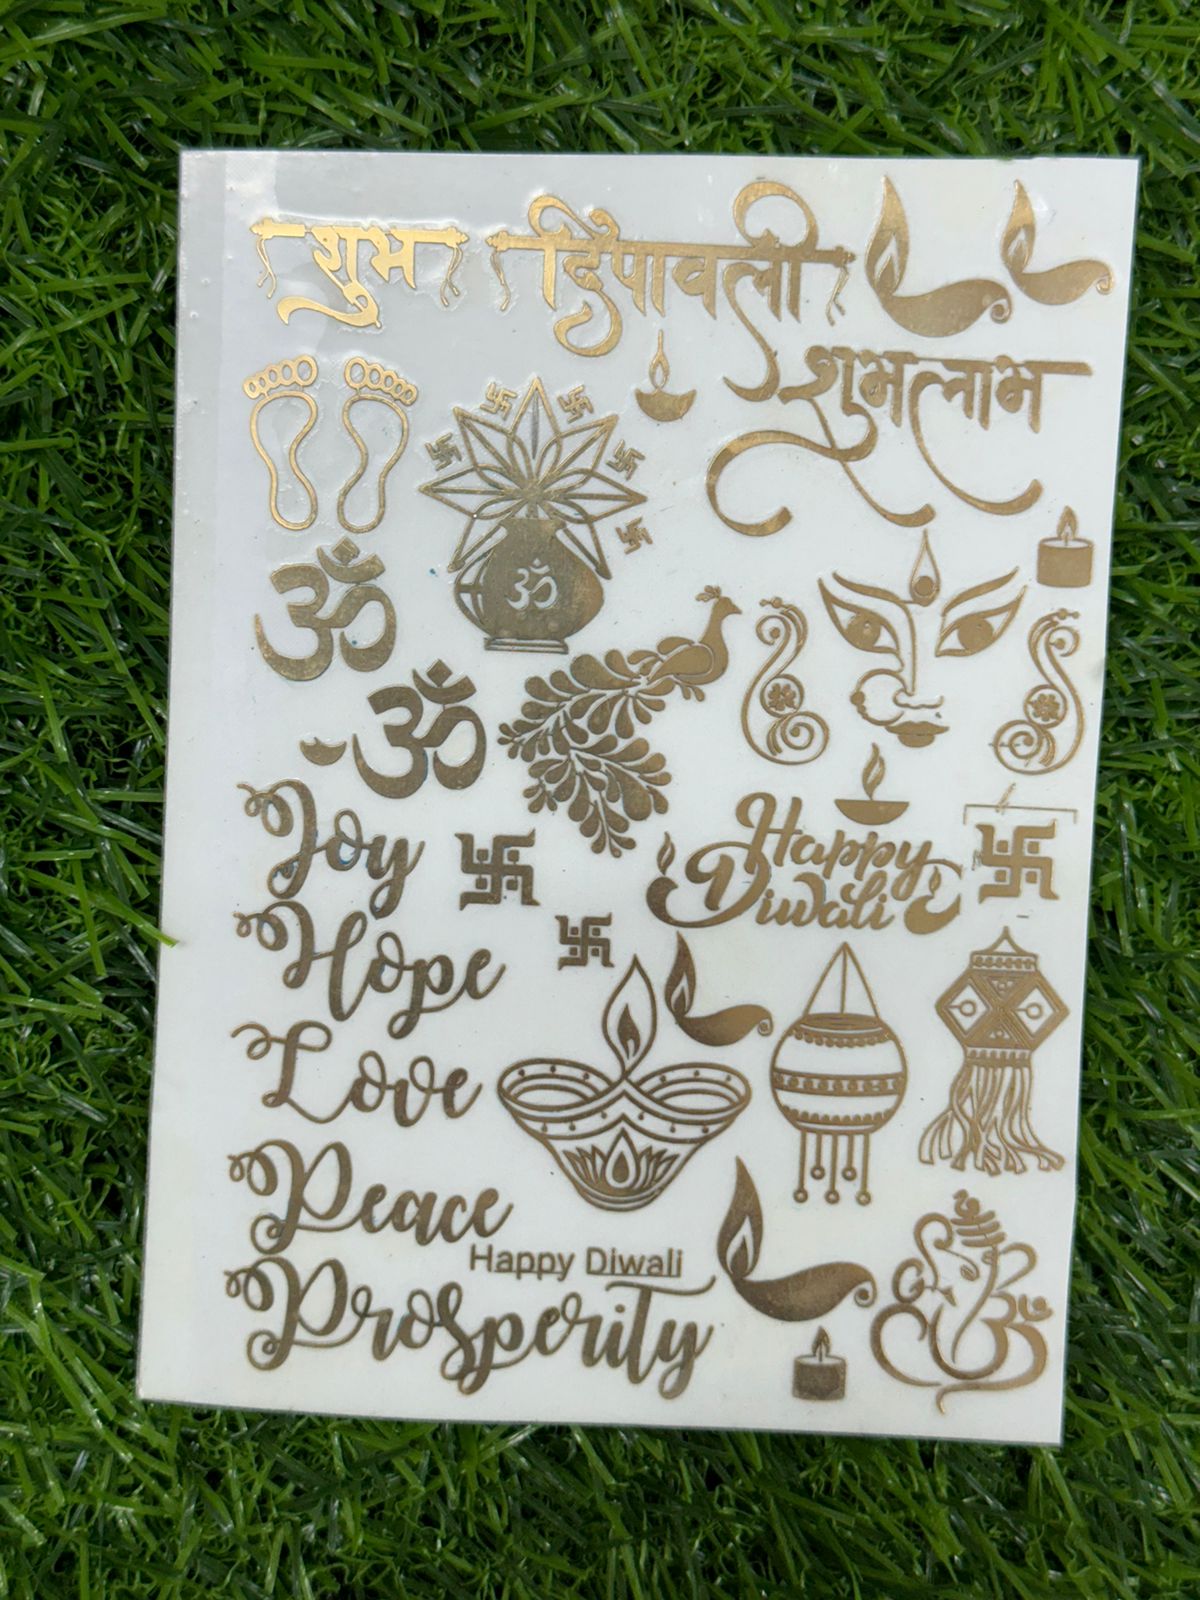 शुभ दिपावली
शुभ लाभ
ॐ
ॐ
ॐ
Joy
Happy
Diwali
Hope
Love
Peace
Happy Diwali
Prosperity